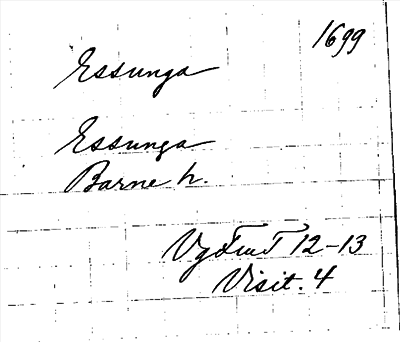 1699
Essunga
Essunga
Barne h.
VgFmT 12-13
Visit. 4